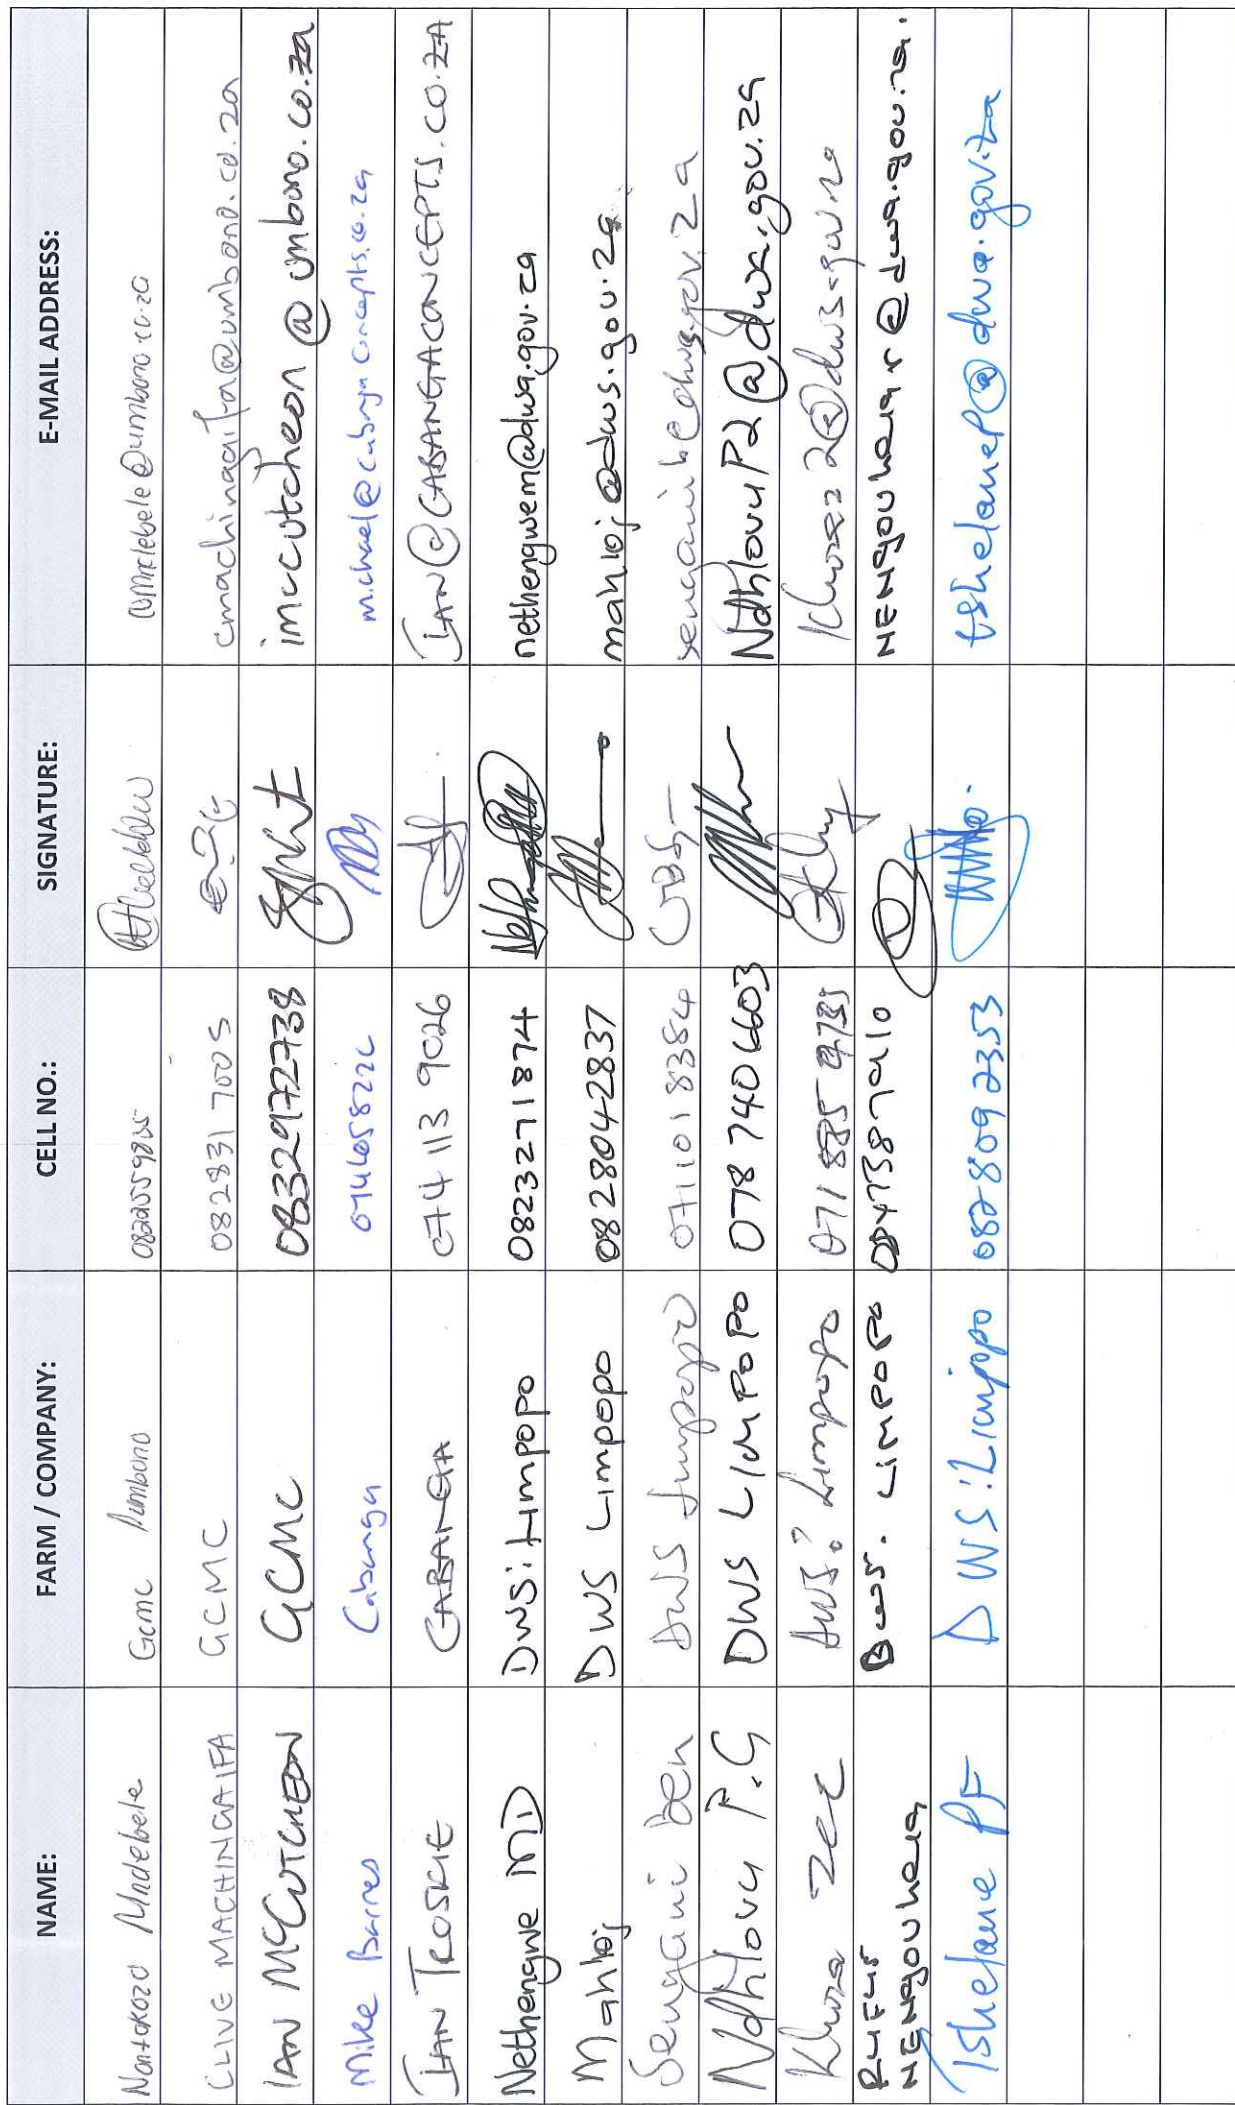 NAME: FARM / COMPANY: CELL NO.: SIGNATURE: E-MAIL ADDRESS:
Nontokozo Mndebele Gcmc 
CLIVE MACHINGAIFA GCMC 082831 7005 cmachingaifa@umbono.co.za
IAN MCCUTCHEON GCMC 0832972738 imccutcheon@umbono.co.za
Mike Barnes Cabanga michael@cabangaconcepts.co.za
IAN TROSKIE CABANGA 074 113 9026 IAN@CABANGACONCEPTS.CO.ZA
Nethengwe MD DWS: Limpopo 0823271874 nethengwem@dwa.gov.za
Mahloj DWS Limpopo 0828042837 mahloj@dws.gov.za
DWS Limpopo 0711018384
Ndhlovu P.G DWS LIMPOPO 078 7406603 NdhlovuP2@dwa.gov.za
Khosa Zee DWS: Limpopo
RUFUS
NENGOVHELA DWS. LIMPOPO NENGOVHELAR@dwa.gov.za.
Tshelane PF DWS: Limpopo 0828092353 tshelaneP@dwa.gov.za